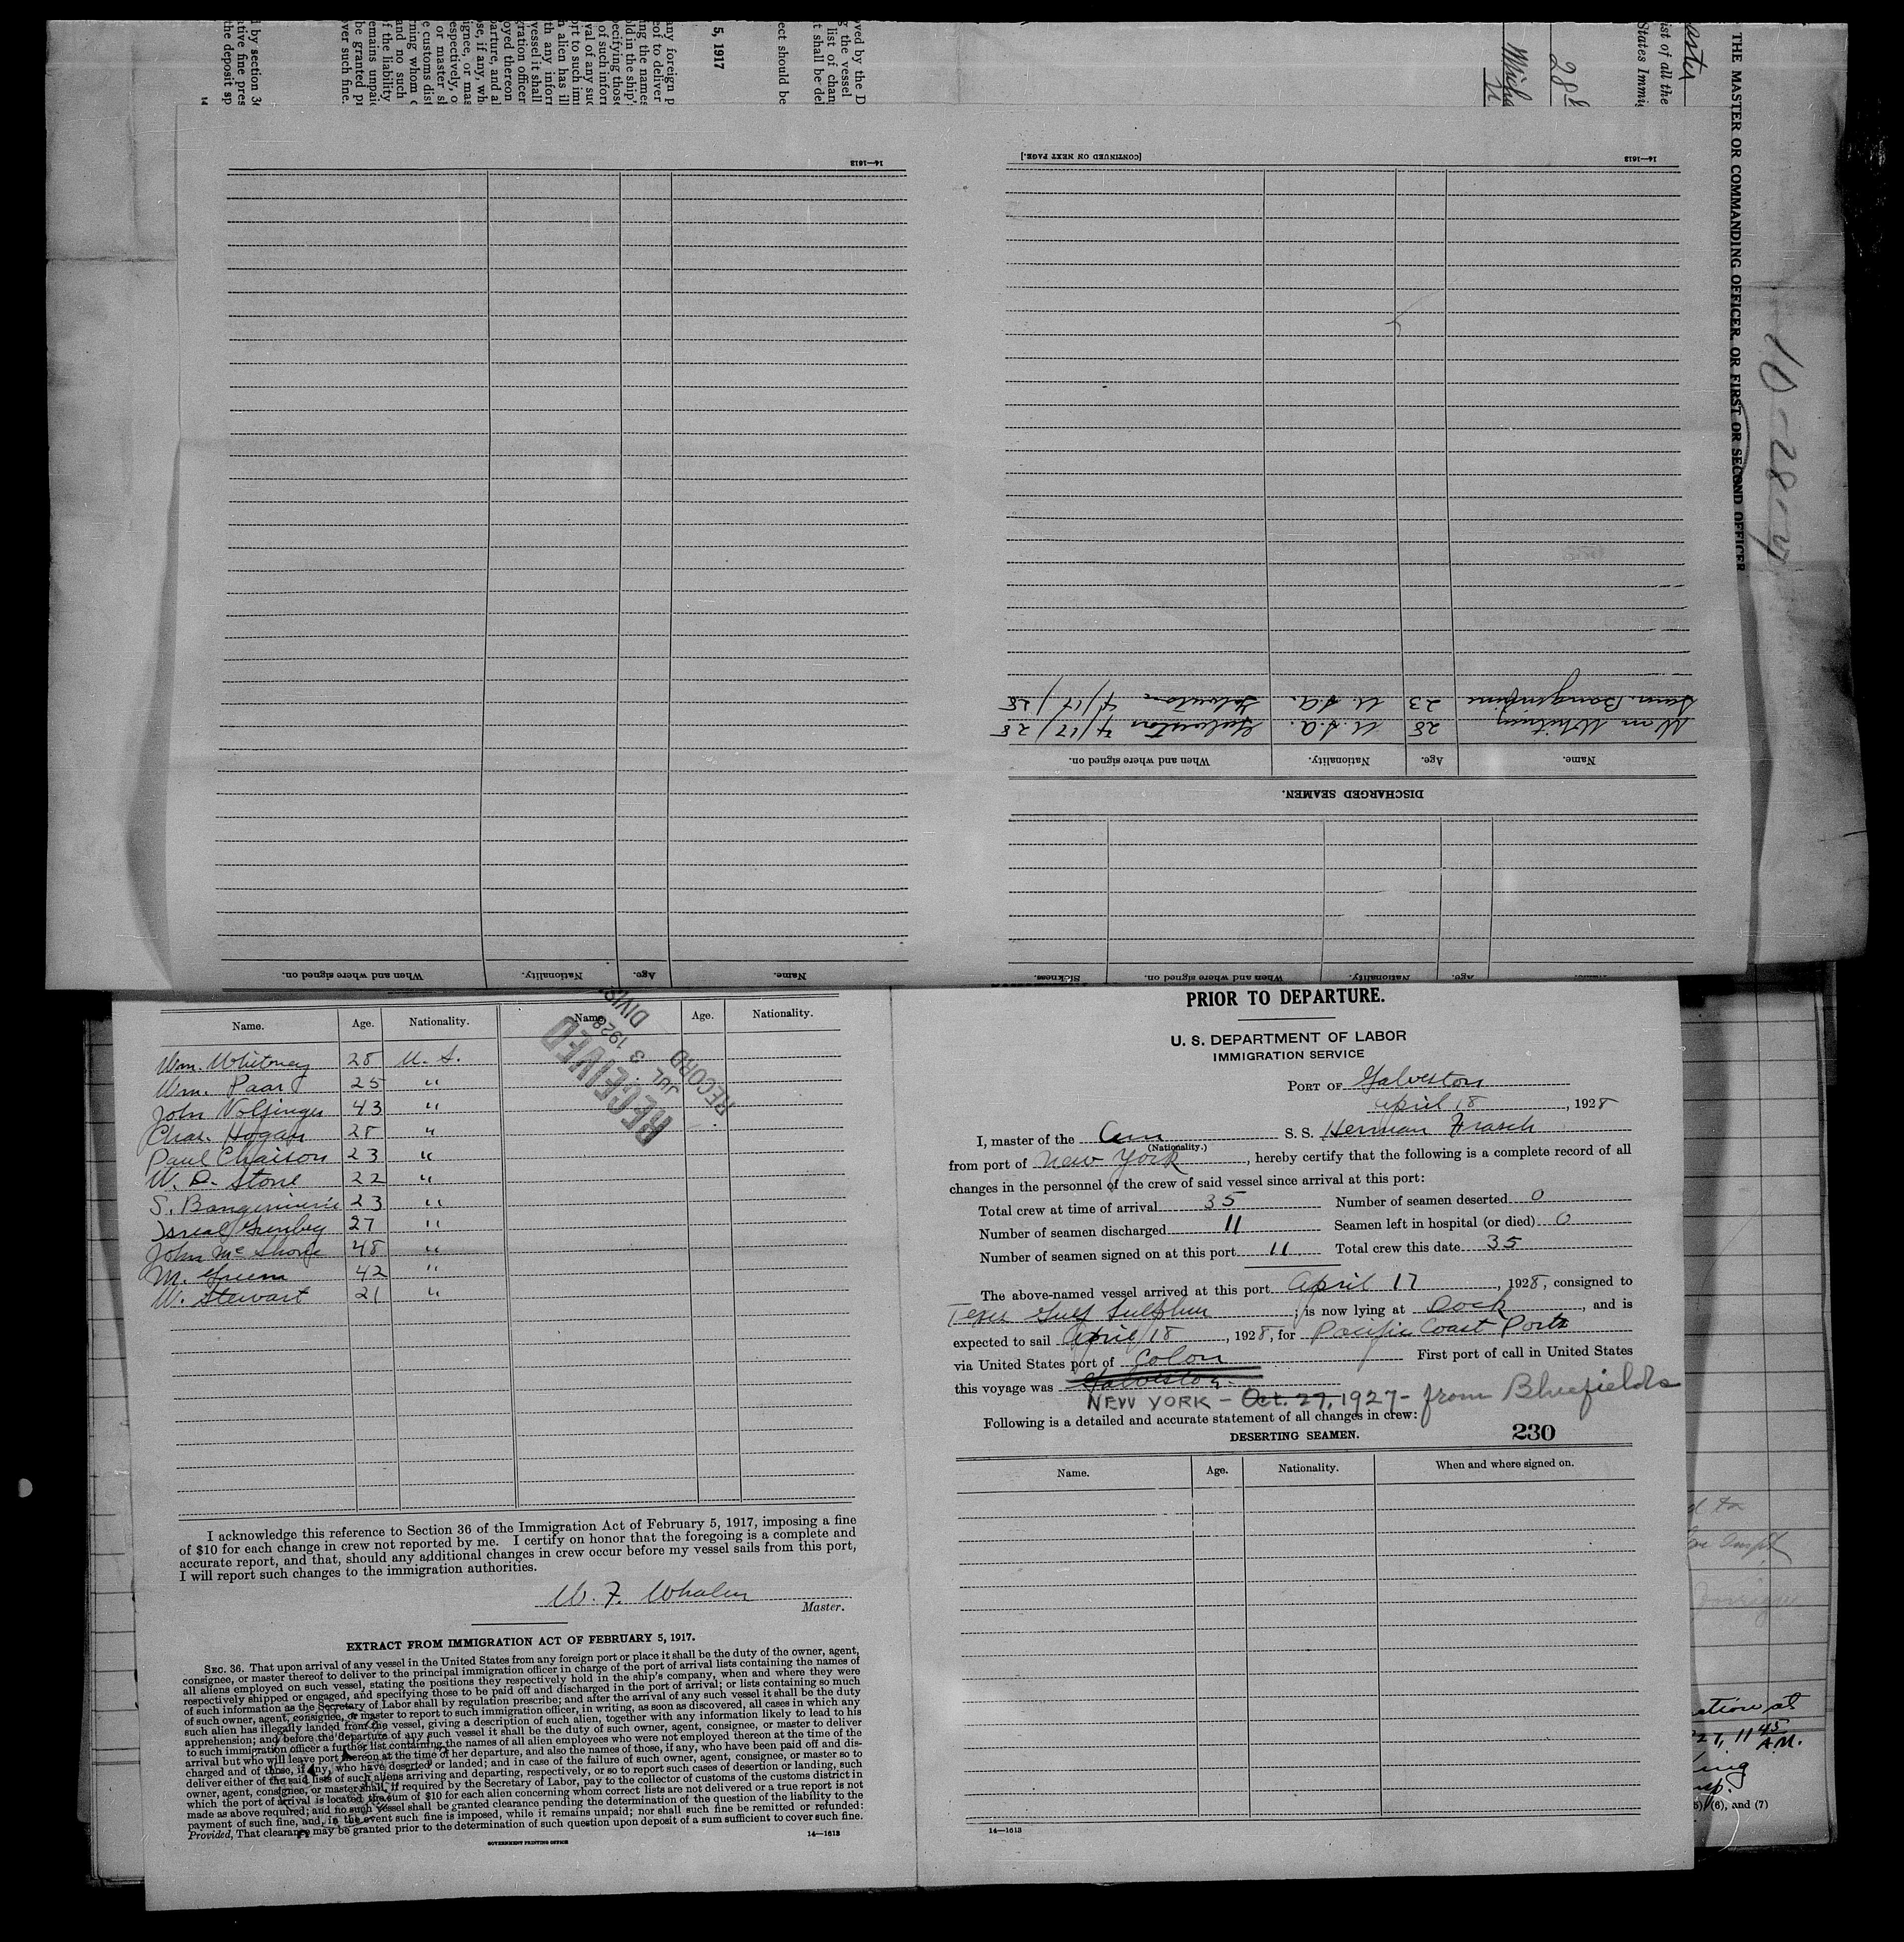 l by section 3
tive fine pres
the deposit sp
any foreign p
eof to deliver
ng the names
old in the ship'
ecifying those
of such inform
val of any suc
rt to such imm
n alien has ill
th any inform
vessel it shall
gration officer
oyed thereon
parture, and al
se, if any, wh
gnee, or mas
espectively, o
or master sh
e customs dist
rning whom c
and no such
f the liability
emains unpaid
be granted pr
ver such fine.
5, 1917
ect should be
ved by the D
g the vessel
list of chan
t shall be del
28th
aster
ist of all the
States Immig
THE MASTER OR COMMANDING OFFICER, OR FIRST OR SECOND OFFICER
14—1613
[CONTINUED ON NEXT PAGE.]
14—1613
Name. Age. Nationality. When and where signed on.
Name. Age. Nationality. When and where signed on. Sickness.
DISCHARGED SEAMEN.
Name. Age. Nationality. When and where signed on.
Wm Whitney 28 U.S.A. Galveston 4/17/28
23 U.S.A. Galveston 4/17/28
Name. Age. Nationality. Name. Age. Nationality.
RECEIVED
JUL 3 1928
RECORD DIVIS.
Wm. Whitney 28 U. S.
Wm. Paar 25 "
John Volsinger 43 "
Chas. Hogan 28 "
Paul Chaison 23 "
W. D. Stone 22 "
S. 23 "
Isreal 27 "
John McShone 48 "
M. Green 42 "
W. Stewart 21 "
I acknowledge this reference to Section 36 of the Immigration Act of February 5, 1917, imposing a fine
of $10 for each change in crew not reported by me. I certify on honor that the foregoing is a complete and
accurate report, and that, should any additional changes in crew occur before my vessel sails from this port,
I will report such changes to the immigration authorities.
W. F. Whalen
Master.
EXTRACT FROM IMMIGRATION ACT OF FEBRUARY 5, 1917.
SEC. 36. That upon arrival of any vessel in the United States from any foreign port or place it shall be the duty of the owner, agent,
consignee, or master thereof to deliver to the principal immigration officer in charge of the port of arrival lists containing the names of
all aliens employed on such vessel, stating the positions they respectively hold in the ship's company, when and where they were
respectively shipped or engaged, and specifying those to be paid off and discharged in the port of arrival; or lists containing so much
of such information as the Secretary of Labor shall by regulation prescribe; and after the arrival of any such vessel it shall be the duty
of such owner, agent, consignee, or master to report to such immigration officer, in writing, as soon as discovered, all cases in which any
such alien has illegally landed from the vessel, giving a description of such alien, together with any information likely to lead to his
apprehension; and before the departure of any such vessel it shall be the duty of such owner, agent, consignee, or master to deliver
to such immigration officer a further list containing the names of all alien employees who were not employed thereon at the time of the
arrival but who will leave port thereon at the time of her departure, and also the names of those, if any, who have been paid off and dis-
charged and of those, if any, who have deserted or landed; and in case of the failure of such owner, agent, consignee, or master so to
deliver either of the said lists of such aliens arriving and departing, respectively, or so to report such cases of desertion or landing, such
owner, agent, consignee, or master shall, if required by the Secretary of Labor, pay to the collector of customs of the customs district in
which the port of arrival is located the sum of $10 for each alien concerning whom correct lists are not delivered or a true report is not
made as above required; and no such vessel shall be granted clearance pending the determination of the question of the liability to the
payment of such fine, and, in the event such fine is imposed, while it remains unpaid; nor shall such fine be remitted or refunded:
Provided, That clearance may be granted prior to the determination of such question upon deposit of a sum sufficient to cover such fine.
GOVERNMENT PRINTING OFFICE 14—1613
PRIOR TO DEPARTURE.
U. S. DEPARTMENT OF LABOR
IMMIGRATION SERVICE
PORT OF Galveston
April 18, 1928
I, master of the Am S. S. Herman Frasch
(Nationality.)
from port of New York, hereby certify that the following is a complete record of all
changes in the personnel of the crew of said vessel since arrival at this port:
Total crew at time of arrival 35 Number of seamen deserted 0
Number of seamen discharged 11 Seamen left in hospital (or died) 0
Number of seamen signed on at this port 11 Total crew this date 35
The above-named vessel arrived at this port April 17, 1928, consigned to
Texas Gulf Sulphur; is now lying at Dock, and is
expected to sail April 18, 1928, for Pacific Coast Ports
via United States port of Colon First port of call in United States
this voyage was Galveston
NEW YORK - Oct. 27, 1927 - from Bluefields
Following is a detailed and accurate statement of all changes in crew:
DESERTING SEAMEN. 230
Name. Age. Nationality. When and where signed on.
14—1613
ction at
27, 11 45 A.M.
5), (6), and (7)